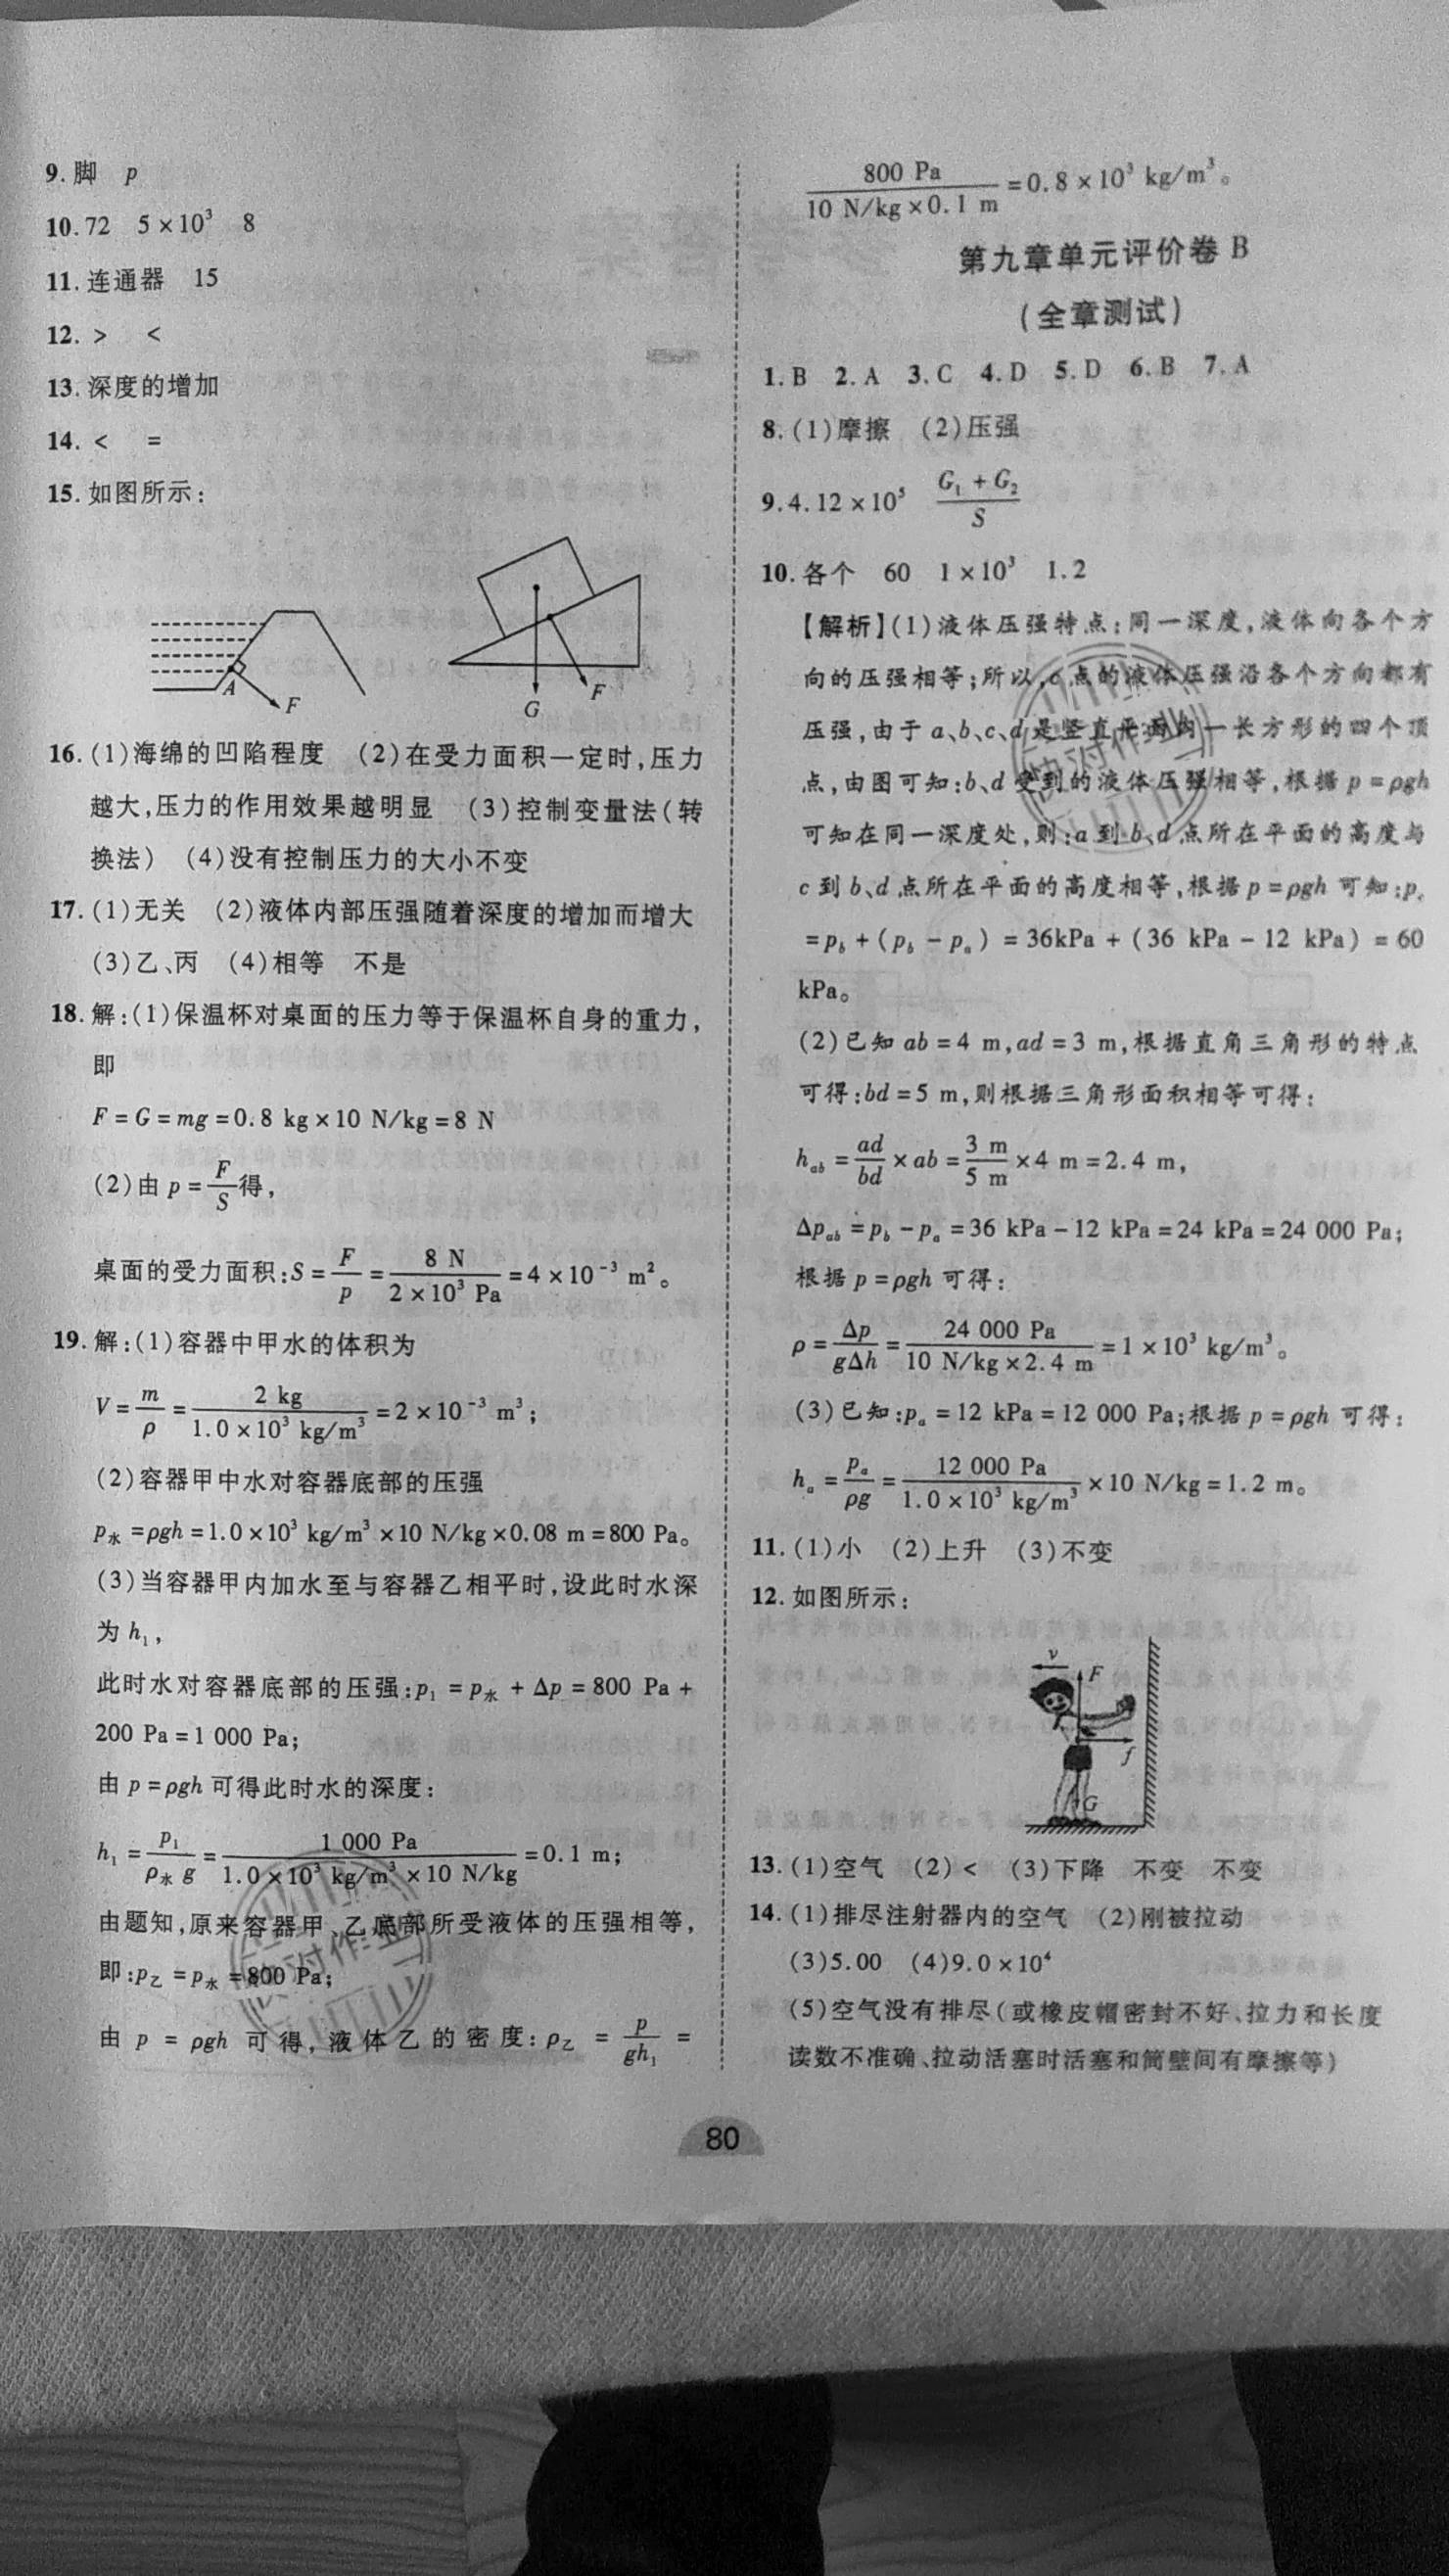 9.脚 p
10.72 5×10³ 8
11.连通器 15
12.> <
13.深度的增加
14.< =
15.如图所示:
A F
G F
16.(1)海绵的凹陷程度 (2)在受力面积一定时,压力
越大,压力的作用效果越明显 (3)控制变量法(转
换法) (4)没有控制压力的大小不变
17.(1)无关 (2)液体内部压强随着深度的增加而增大
(3)乙、丙 (4)相等 不是
18.解:(1)保温杯对桌面的压力等于保温杯自身的重力,
即
F=G=mg=0.8 kg×10 N/kg=8 N
(2)由 p=F/S得,
桌面的受力面积:S=F/p=8 N/(2×10³ Pa)=4×10⁻³ m²。
19.解:(1)容器中甲水的体积为
V=m/ρ=2 kg/(1.0×10³ kg/m³)=2×10⁻³ m³;
(2)容器甲中水对容器底部的压强
p水=ρgh=1.0×10³ kg/m³×10 N/kg×0.08 m=800 Pa。
(3)当容器甲内加水至与容器乙相平时,设此时水深
为 h₁,
此时水对容器底部的压强:p₁=p水+Δp=800 Pa+
200 Pa=1 000 Pa;
由 p=ρgh 可得此时水的深度:
h₁=p₁/(ρ水 g)=1 000 Pa/(1.0×10³ kg/m³×10 N/kg)=0.1 m;
由题知,原来容器甲、乙底部所受液体的压强相等,
即:p乙=p水=800 Pa;
由 p=ρgh 可得,液体乙的密度:ρ乙=p/(gh₁)=
800 Pa/(10 N/kg×0.1 m)=0.8×10³ kg/m³。
第九章单元评价卷 B
(全章测试)
1.B 2.A 3.C 4.D 5.D 6.B 7.A
8.(1)摩擦 (2)压强
9.4.12×10⁵ (G₁+G₂)/S
10.各个 60 1×10³ 1.2
【解析】(1)液体压强特点:同一深度,液体向各个方
向的压强相等;所以,c点的液体压强沿各个方向都有
压强,由于a、b、c、d是竖直平面内一长方形的四个顶
点,由图可知:b、d受到的液体压强相等,根据 p=ρgh
可知在同一深度处,则:a到b、d点所在平面的高度与
c到b、d点所在平面的高度相等,根据 p=ρgh 可知:pc
=pb+(pb-pa)=36kPa+(36 kPa-12 kPa)=60
kPa。
(2)已知 ab=4 m,ad=3 m,根据直角三角形的特点
可得:bd=5 m,则根据三角形面积相等可得:
hab=ad/bd×ab=3 m/5 m×4 m=2.4 m,
Δpab=pb-pa=36 kPa-12 kPa=24 kPa=24 000 Pa;
根据 p=ρgh 可得:
ρ=Δp/(gΔh)=24 000 Pa/(10 N/kg×2.4 m)=1×10³ kg/m³。
(3)已知:pa=12 kPa=12 000 Pa;根据 p=ρgh 可得:
ha=pa/(ρg)=12 000 Pa/(1.0×10³ kg/m³)×10 N/kg=1.2 m。
11.(1)小 (2)上升 (3)不变
12.如图所示:
v F
f
G
13.(1)空气 (2)< (3)下降 不变 不变
14.(1)排尽注射器内的空气 (2)刚被拉动
(3)5.00 (4)9.0×10⁴
(5)空气没有排尽(或橡皮帽密封不好、拉力和长度
读数不准确、拉动活塞时活塞和筒壁间有摩擦等)
80